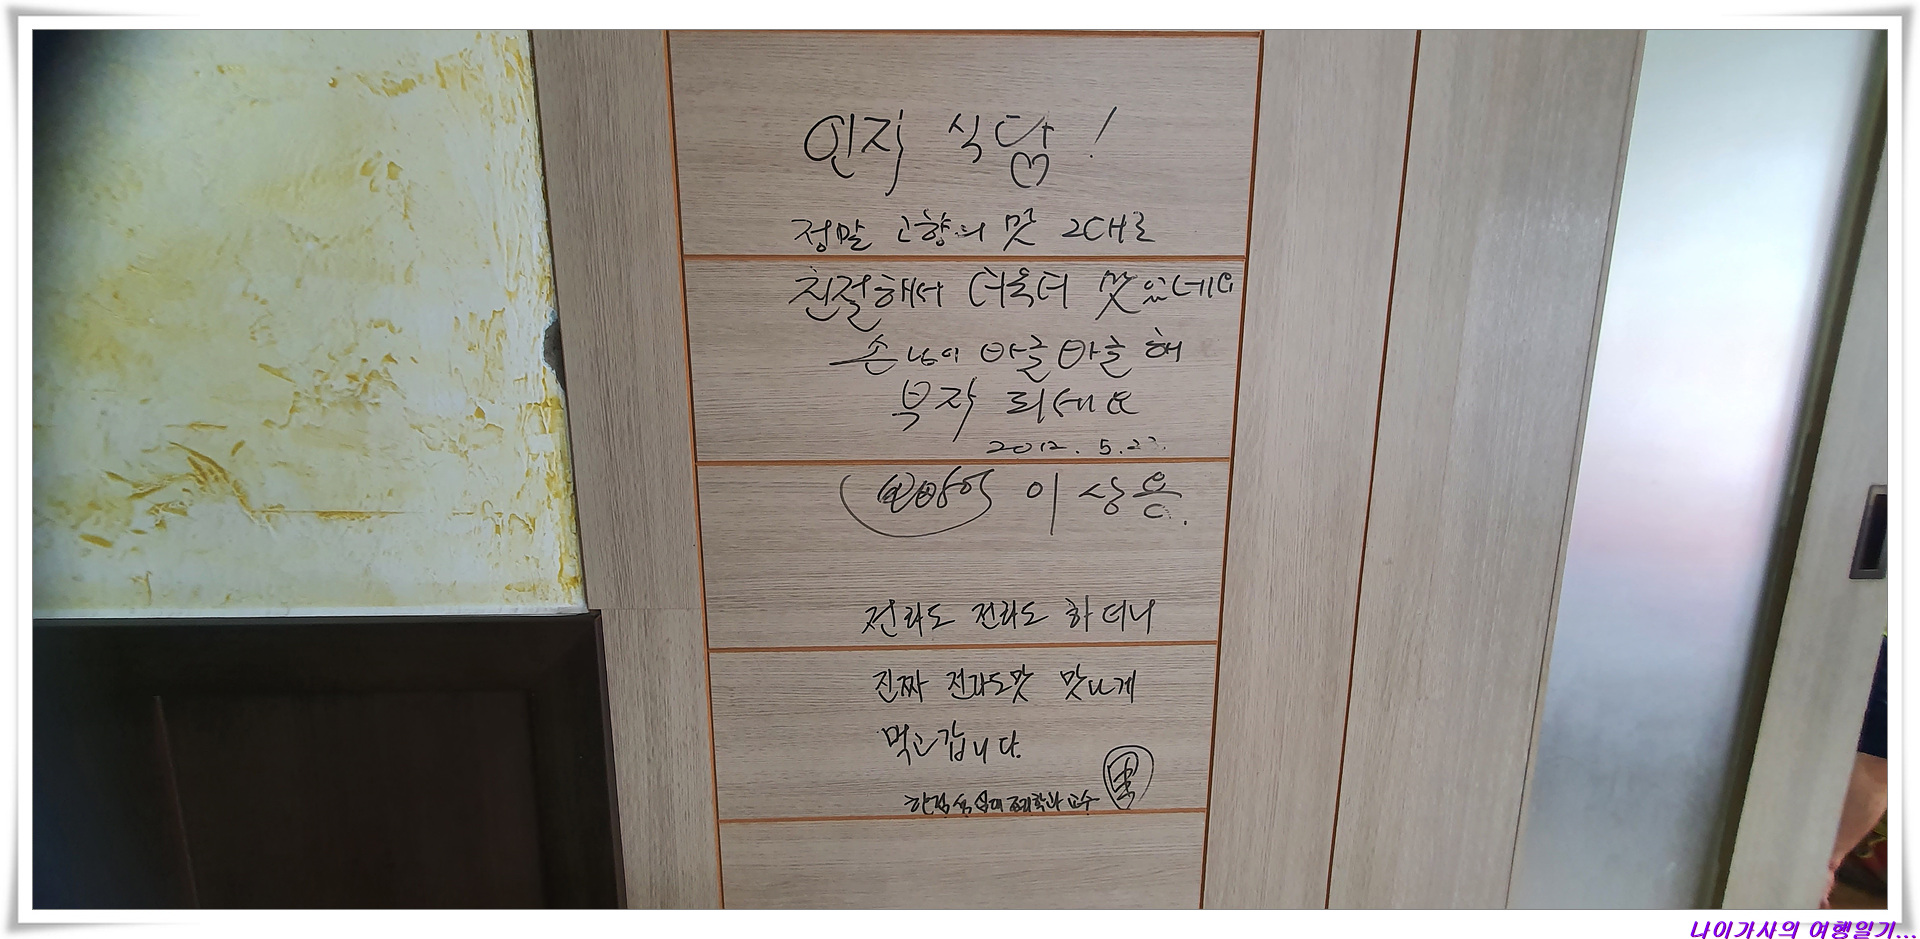 인지 식당!
정말 고향의 맛 그대로
친절해서 더욱더 맛있네요
손님이 바글바글 해
부자 되세요
2012. 5. 27.
뽀빵이 이상용.
전라도 전라도 하더니
진짜 전라도맛 맛나게
먹고 갑니다.
조리학과 교수
나이가사의 여행일기...